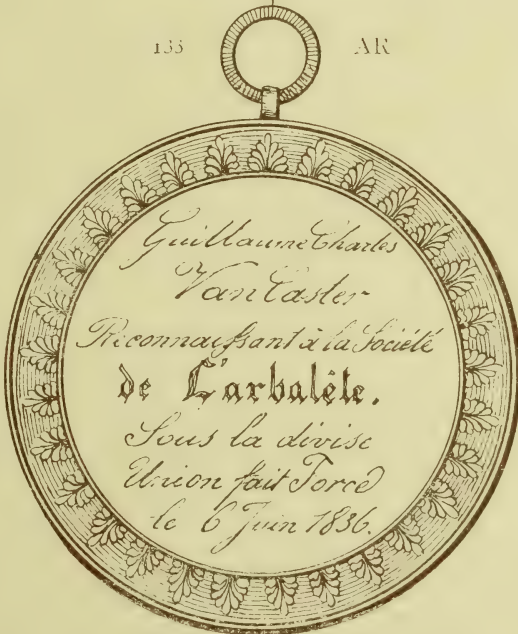 133 AR
Guillaume Charles
Van Caster
Reconnaissant à la Société
de L'arbalète.
Sous la divise
Union fait Force
le 6 Juin 1836.